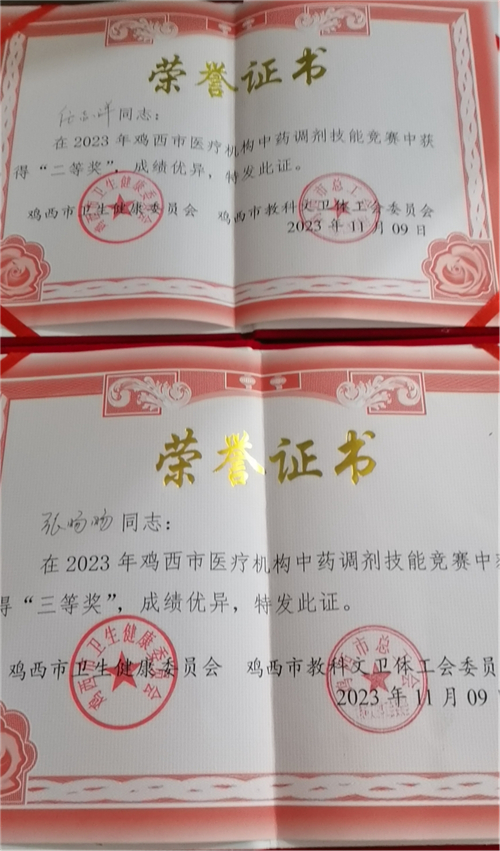 荣誉证书
同志：
在2023年鸡西市医疗机构中药调剂技能竞赛中获
得“二等奖”，成绩优异，特发此证。
鸡西市卫生健康委员会 鸡西市教科文卫体工会委员会
2023年11月09日
荣誉证书
张旸旸同志：
在2023年鸡西市医疗机构中药调剂技能竞赛中
得“三等奖”，成绩优异，特发此证。
鸡西市卫生健康委员会 鸡西市教科文卫体工会委员
2023年11月09